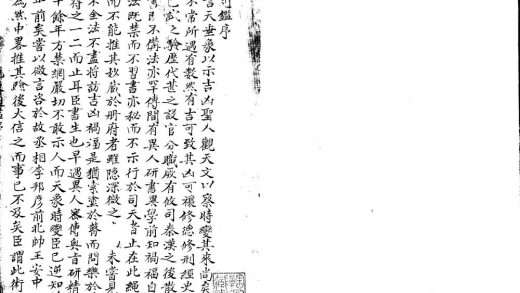 鑑序
言天垂象以示吉凶聖人觀天文以察時變其來尚矣
不常所遇有數然有吉可致其凶可禳修德修刑經史
已成之驗歷代甚之設官分職厥有攸司秦漢之後散
不講法亦罕傳間有異人研書異學前知禍福自
法既禁而不習書亦秘而不示行於司天者止在此繩
而不能推其妙藏於册府者雖隱深微之 未嘗見
不全法不盡將訪吉凶禍謹是猶索塗於瞽而問樂於
符之一二而止耳臣書生也早遇異人密傳奥旨研精
十餘年方禁網嚴切不敢示人而天象時變臣已逆知
止前矣嘗以微言咨於故丞相李邦彦前北帥王安中
為然中畧推其驗後大信之而事已不及矣臣謂此術